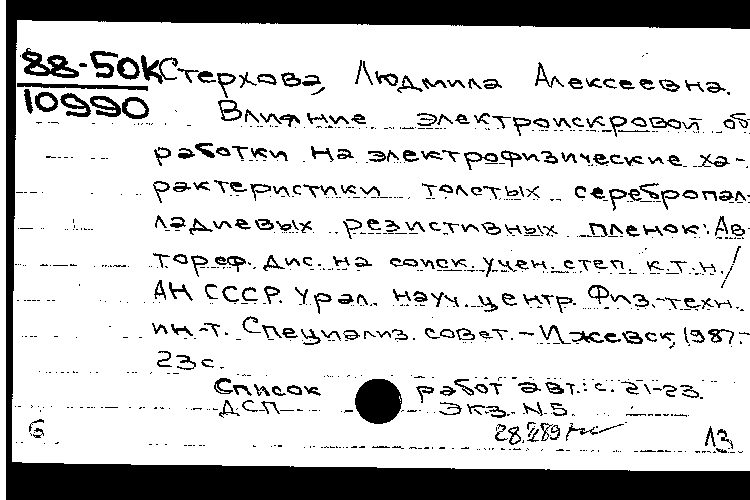 88-50К Стерхова, Людмила Алексеевна.
10990
Влияние электроискровой об
работки на электрофизические ха-
рактеристики толстых серебропал-
ладиевых резистивных пленок: Ав-
тореф. дис. на соиск. учен. степ. к.т.н./
АН СССР. Урал. науч. центр. Физ.-техн.
ин-т. Специализ. совет. - Ижевск, 1987.-
23 с.
Список работ авт.: с. 21-23.
ДСП Экз. N 5.
6 13